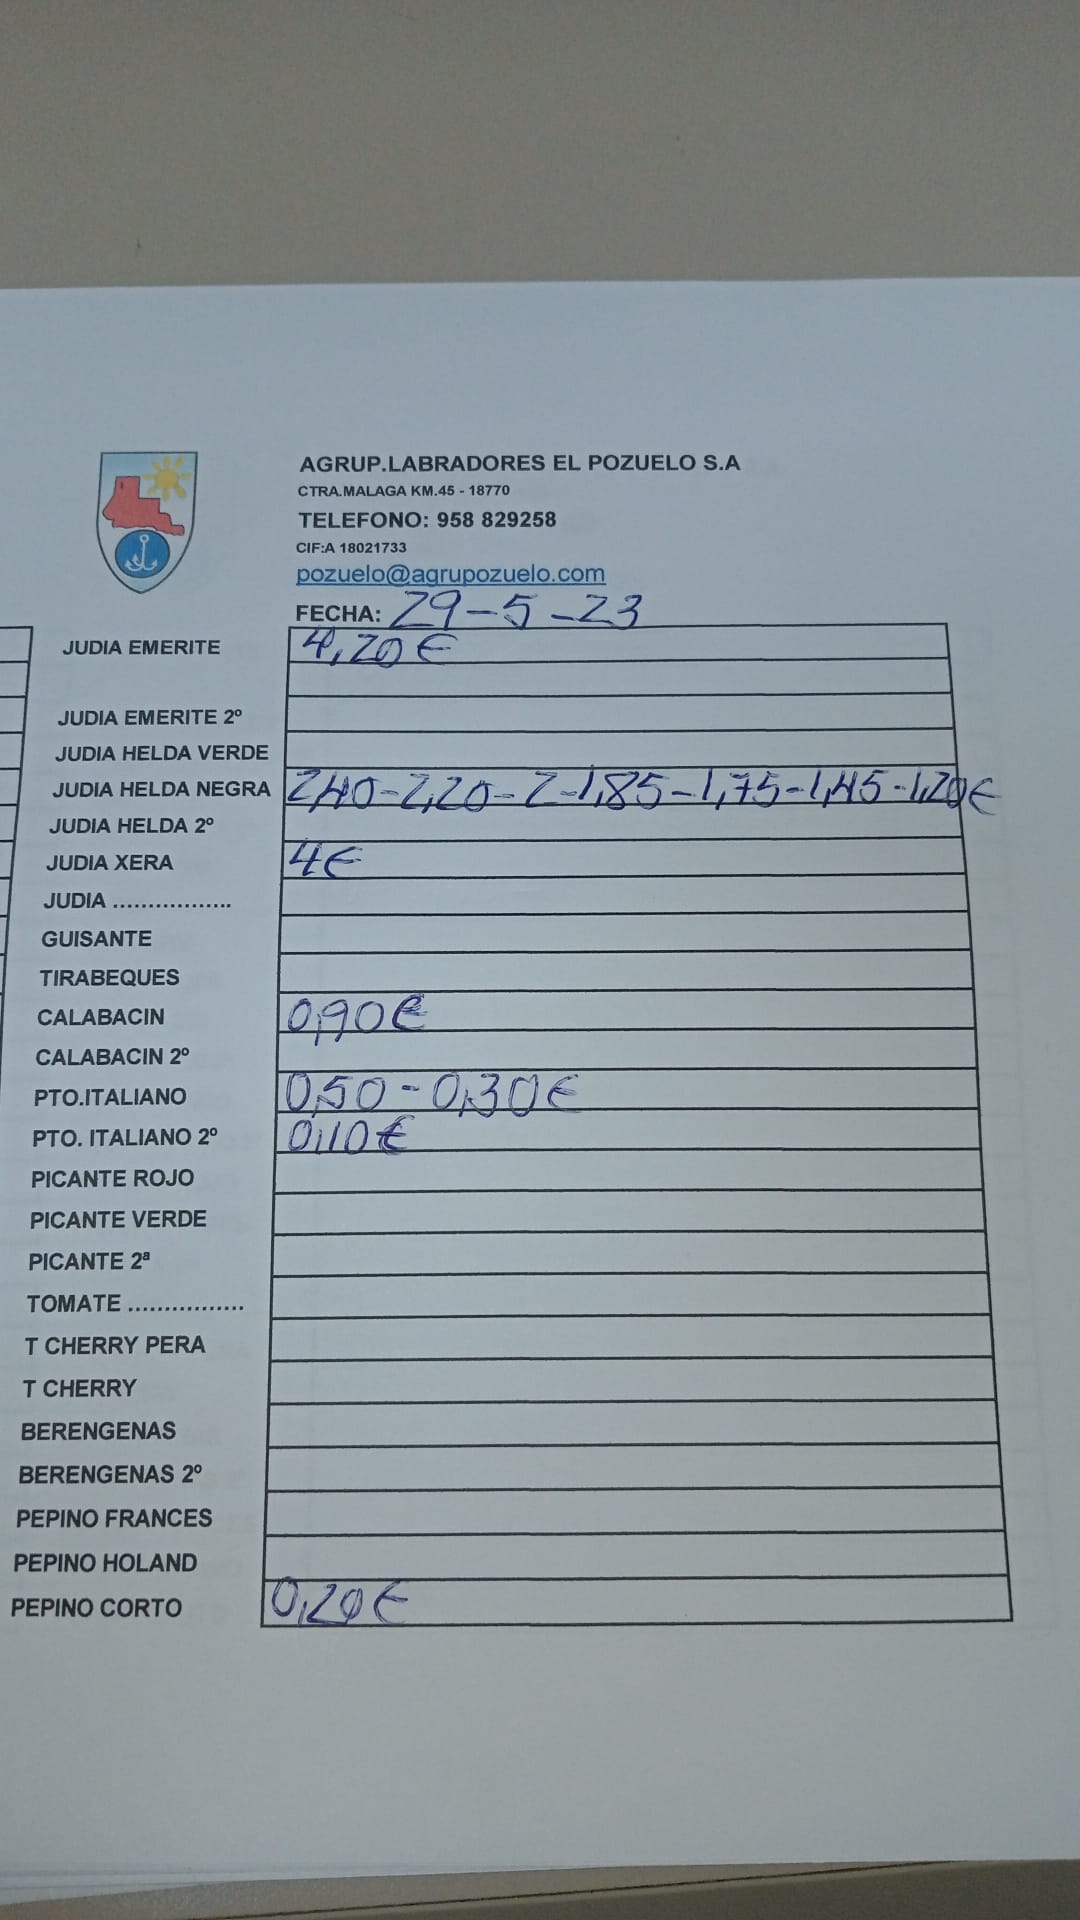 AGRUP.LABRADORES EL POZUELO S.A
CTRA.MALAGA KM.45 - 18770
TELEFONO: 958 829258
CIF:A 18021733
pozuelo@agrupozuelo.com
FECHA: 29-5-23
JUDIA EMERITE 4,20€
JUDIA EMERITE 2º
JUDIA HELDA VERDE
JUDIA HELDA NEGRA 2,40-2,20-2-1,85-1,75-1,45-1,20€
JUDIA HELDA 2º
JUDIA XERA 4€
JUDIA .................
GUISANTE
TIRABEQUES
CALABACIN 0,90€
CALABACIN 2º
PTO.ITALIANO 0,50-0,30€
PTO. ITALIANO 2º 0,10€
PICANTE ROJO
PICANTE VERDE
PICANTE 2ª
TOMATE ................
T CHERRY PERA
T CHERRY
BERENGENAS
BERENGENAS 2º
PEPINO FRANCES
PEPINO HOLAND
PEPINO CORTO 0,20€